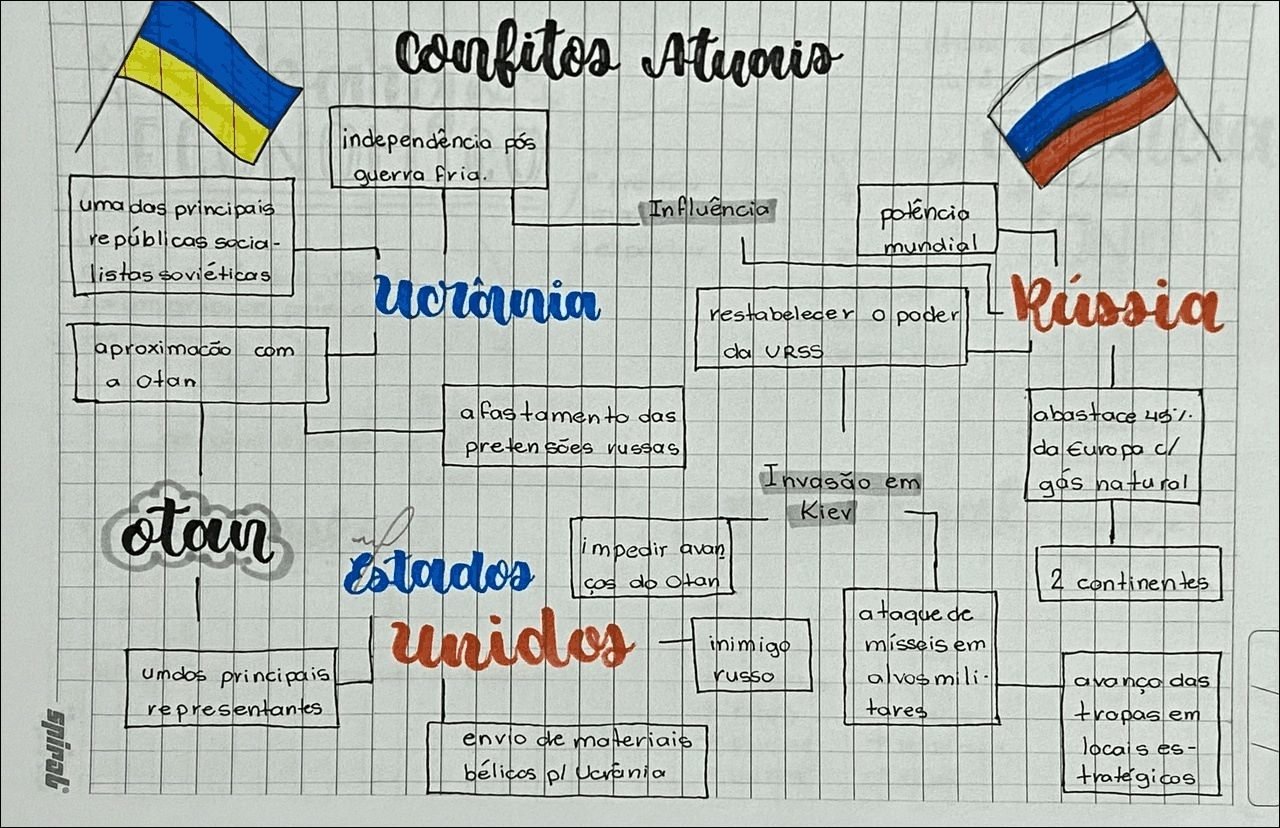 Confitos Atuais
independência pós
guerra fria.
uma das principais
repúblicas socia-
listas soviéticas
Influência
potência
mundial
Ucrânia
Rússia
restabelecer o poder
da URSS
aproximacão com
a Otan
afastamento das
pretensões russas
abastace 45%
da Europa c/
gás natural
Invasão em
Kiev
otan
Estados
Unidos
impedir avan
ços do Otan
2 continentes
ataque de
mísseis em
alvos mili-
tares
inimigo
russo
um dos principais
representantes
avanço das
tropas em
locais es-
tratégicos
envio de materiais
bélicos p/ Ucrânia
spiral